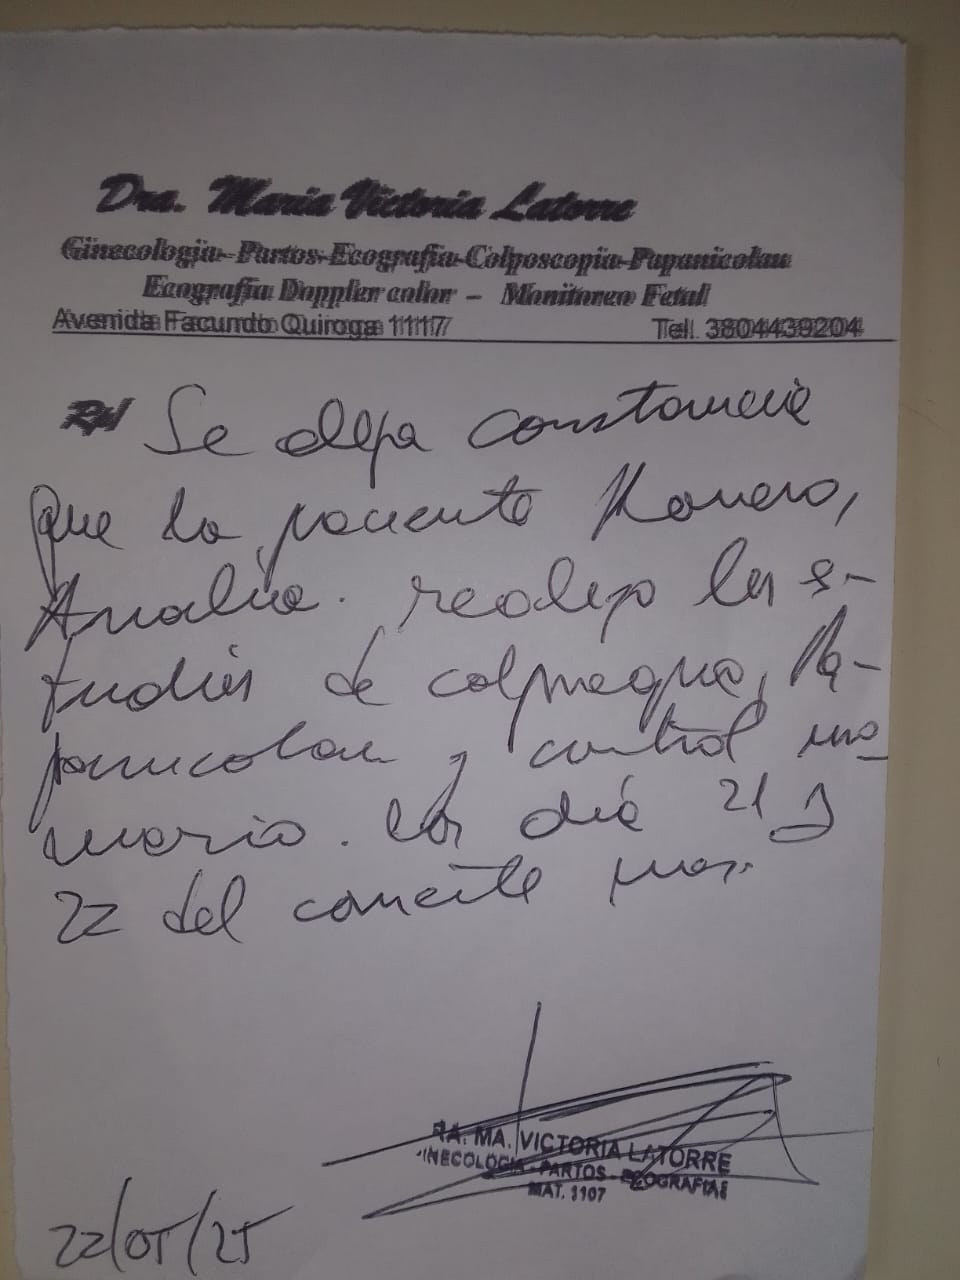 Dra. Maria Victoria Latorre
Ginecologia-Partos-Ecografia-Colposcopia-Papanicolau
Ecografia Doppler color - Monitoreo Fetal
Avenida Facundo Quiroga 1117
Tel. 3804439204
Se deja constancia
que la paciente
Analia. realizo los es-
tudios de Pa-
panicolau y control ma-
mario. los día 21 y
22 del corriente mes.
RA. MA. VICTORIA LATORRE
INECOLOGIA - PARTOS - ECOGRAFIAS
MAT. 1107
22/05/25